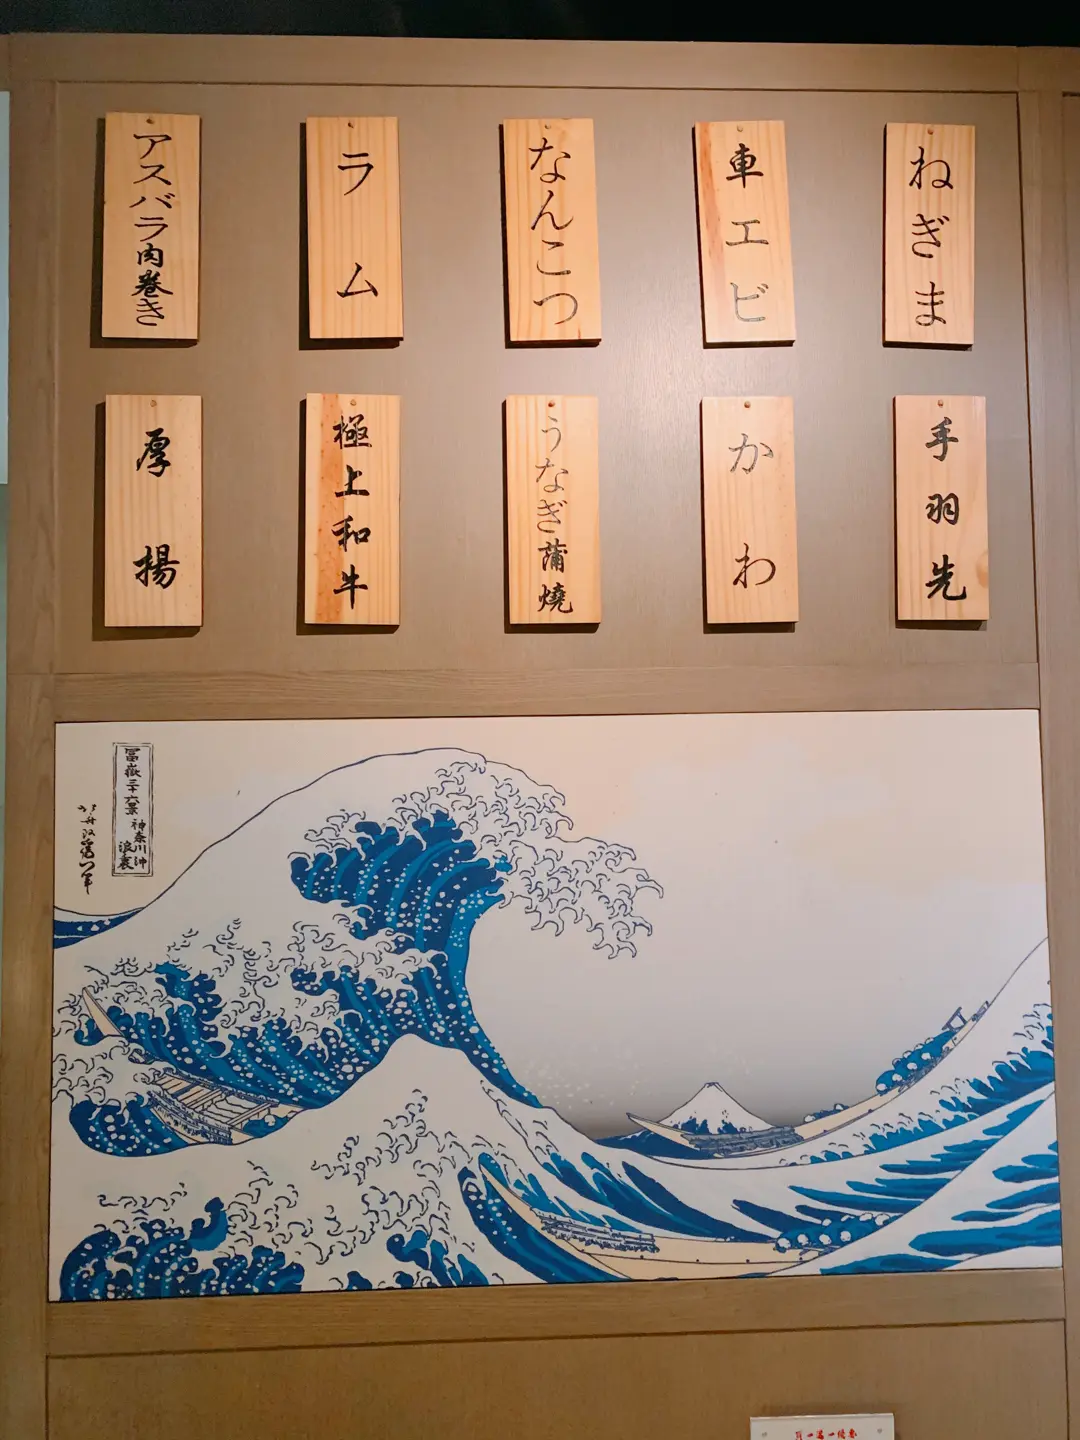 ねぎま
車エビ
なんこつ
ラム
アスパラ肉巻き
手羽先
かわ
うなぎ蒲焼
極上和牛
厚揚
冨嶽三十六景
神奈川沖
浪裏